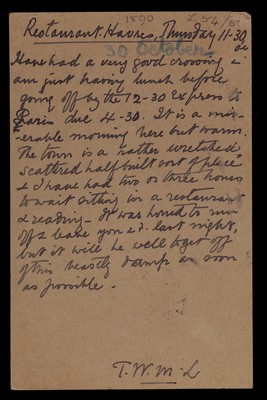 1890
Restaurant. Havres, Thursday 11-30
30 October
Have had a very good crossing &
am just having lunch before
going off by the 12-30 Express to
Paris due 4-30. It is a mis-
-erable morning here but warm.
The town is a rather wretched
scattred half built sort of place
& I have had two or three hours
to wait sitting in a restaurant
& reading. It was horrid to run
off & leave you last night,
but it will be well to get off
this beastly damp as soon
as possible.
T.W.M-L